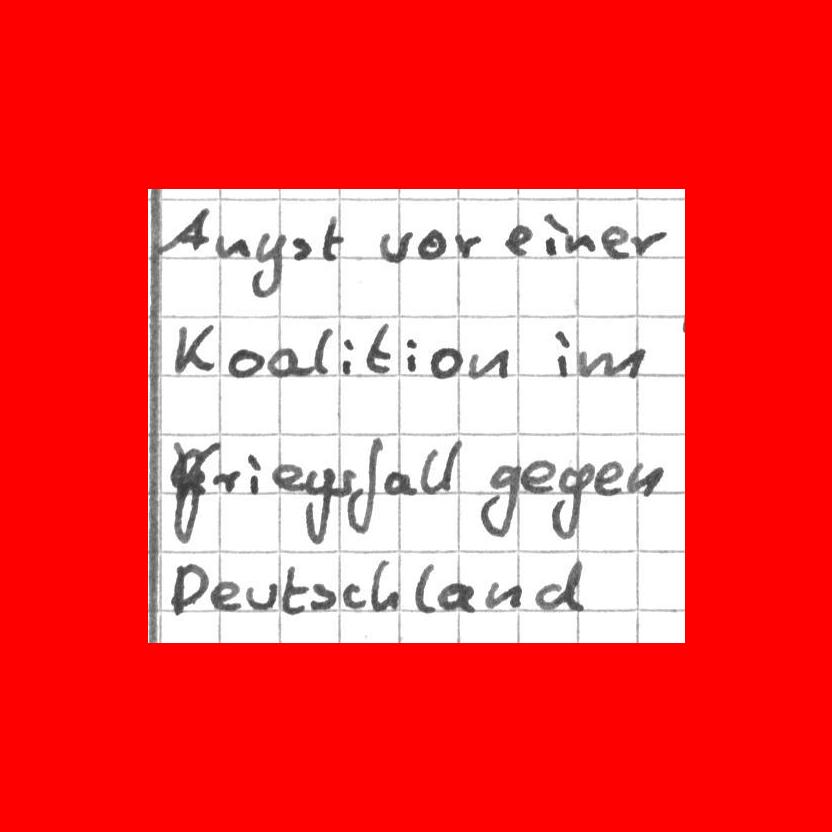 Angst vor einer
Koalition im
Kriegsfall gegen
Deutschland